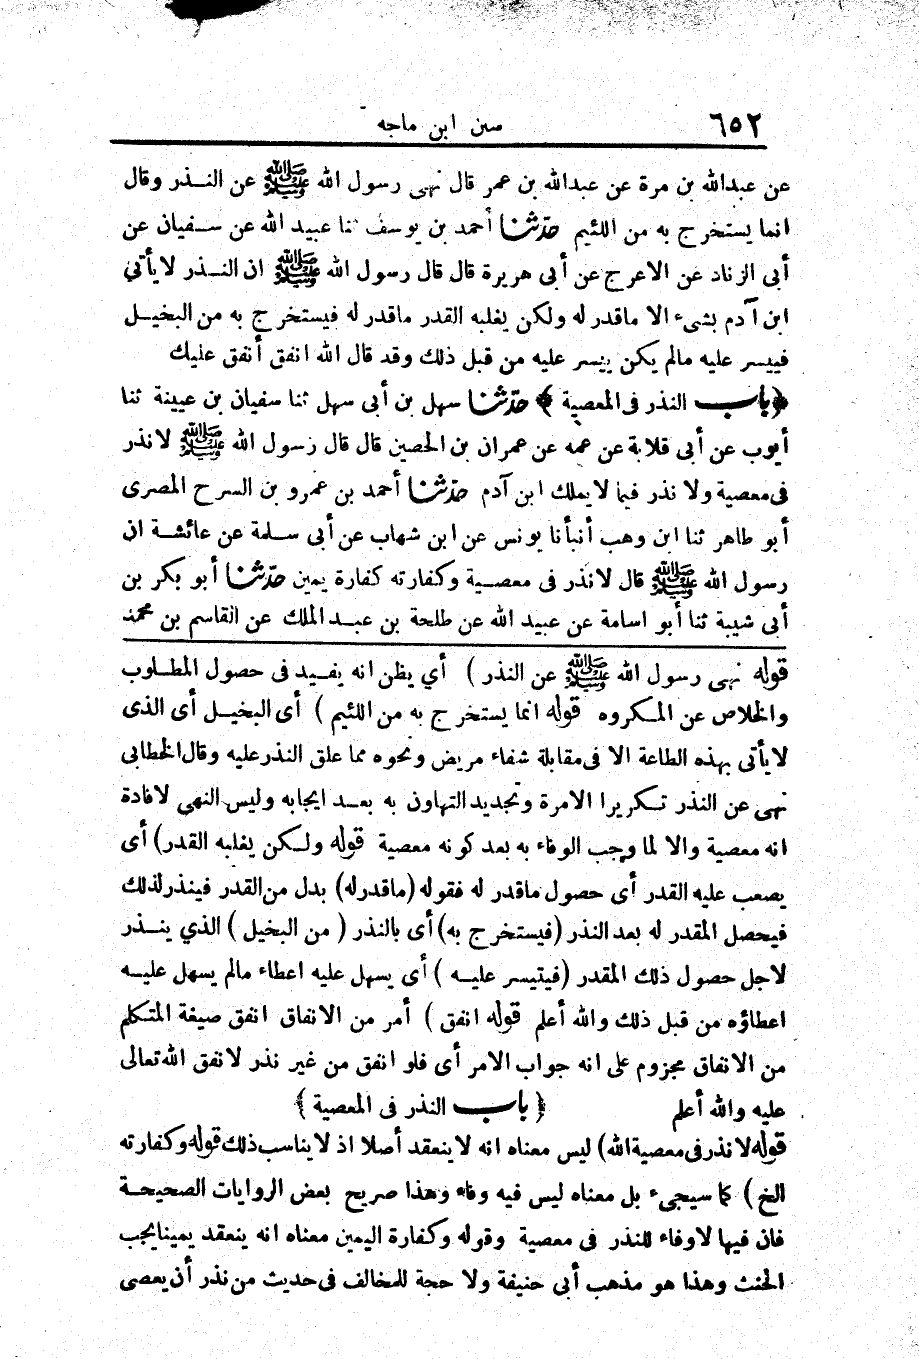 ٦٥٢ سنن ابن ماجه
عن عبدالله بن مرة عن عبدالله بن عمر قال نهى رسول الله ﷺ عن النذر وقال
انما يستخرج به من اللئيم حدّثنا أحمد بن يوسف ثنا عبيد الله عن سفيان عن
أبى الزناد عن الاعرج عن أبى هريرة قال قال رسول الله ﷺ ان النذر لايأتى
ابن آدم بشىء الا ماقدر له ولكن يغلبه القدر ماقدر له فيستخرج به من البخيل
فييسر عليه مالم يكن ييسر عليه من قبل ذلك وقد قال الله انفق أنفق عليك
﴿باب النذر فى المعصية﴾ حدّثنا سهل بن أبى سهل ثنا سفيان بن عيينة ثنا
أيوب عن أبى قلابة عن عمه عن عمران بن الحصين قال قال رسول الله ﷺ لانذر
فى معصية ولا نذر فيما لايملك ابن آدم حدّثنا أحمد بن عمرو بن السرح المصرى
أبو طاهر ثنا ابن وهب أنبأنا يونس عن ابن شهاب عن أبى سلمة عن عائشة ان
رسول الله ﷺ قال لانذر فى معصية وكفارته كفارة يمين حدّثنا أبو بكر بن
أبى شيبة ثنا أبو اسامة عن عبيد الله عن طلحة بن عبد الملك عن القاسم بن محمد
قوله نهى رسول الله ﷺ عن النذر ) أي يظن انه يفيد فى حصول المطلوب
والخلاص عن المكروه قوله انما يستخرج به من اللئيم ) أى البخيل أى الذى
لايأتى بهذه الطاعة الا فى مقابلة شفاء مريض ونحوه مما علق النذر عليه وقال الخطابى
نهى عن النذر تكريرا الامرة وتجديد التهاون به بعد ايجابه وليس النهى لافادة
انه معصية والا لما وجب الوفاء به بعد كونه معصية قوله ولكن يغلبه القدر) أى
يصعب عليه القدر أى حصول ماقدر له فقوله (ماقدرله) بدل من القدر فينذر لذلك
فيحصل المقدر له بعد النذر (فيستخرج به) أى بالنذر ( من البخيل ) الذي ينذر
لاجل حصول ذلك المقدر (فيتيسر عليه ) أى يسهل عليه اعطاء مالم يسهل عليه
اعطاؤه من قبل ذلك والله أعلم قوله انفق ) أمر من الانفاق انفق صيغة المتكلم
من الانفاق مجزوم على انه جواب الامر أى فلو انفق من غير نذر لانفق الله تعالى
عليه والله أعلم ﴿ باب النذر فى المعصية ﴾
قوله لانذر فى معصية الله) ليس معناه انه لاينعقد أصلا اذ لايناسب ذلك قوله وكفارته
الخ ) كما سيجىء بل معناه ليس فيه وفاء وهذا صريح بعض الروايات الصحيحة
فان فيها لاوفاء للنذر فى معصية وقوله وكفارة اليمين معناه انه ينعقد يمينا يجب
الحنث وهذا هو مذهب أبى حنيفة ولا حجة للمخالف فى حديث من نذر أن يعصى